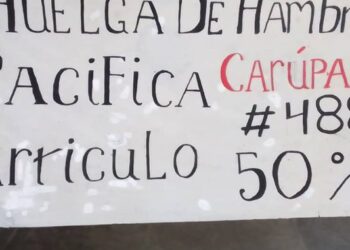 HUELGA DE HAMBR
PACIFICA CARÚPA
#488
ARTICULO 50%